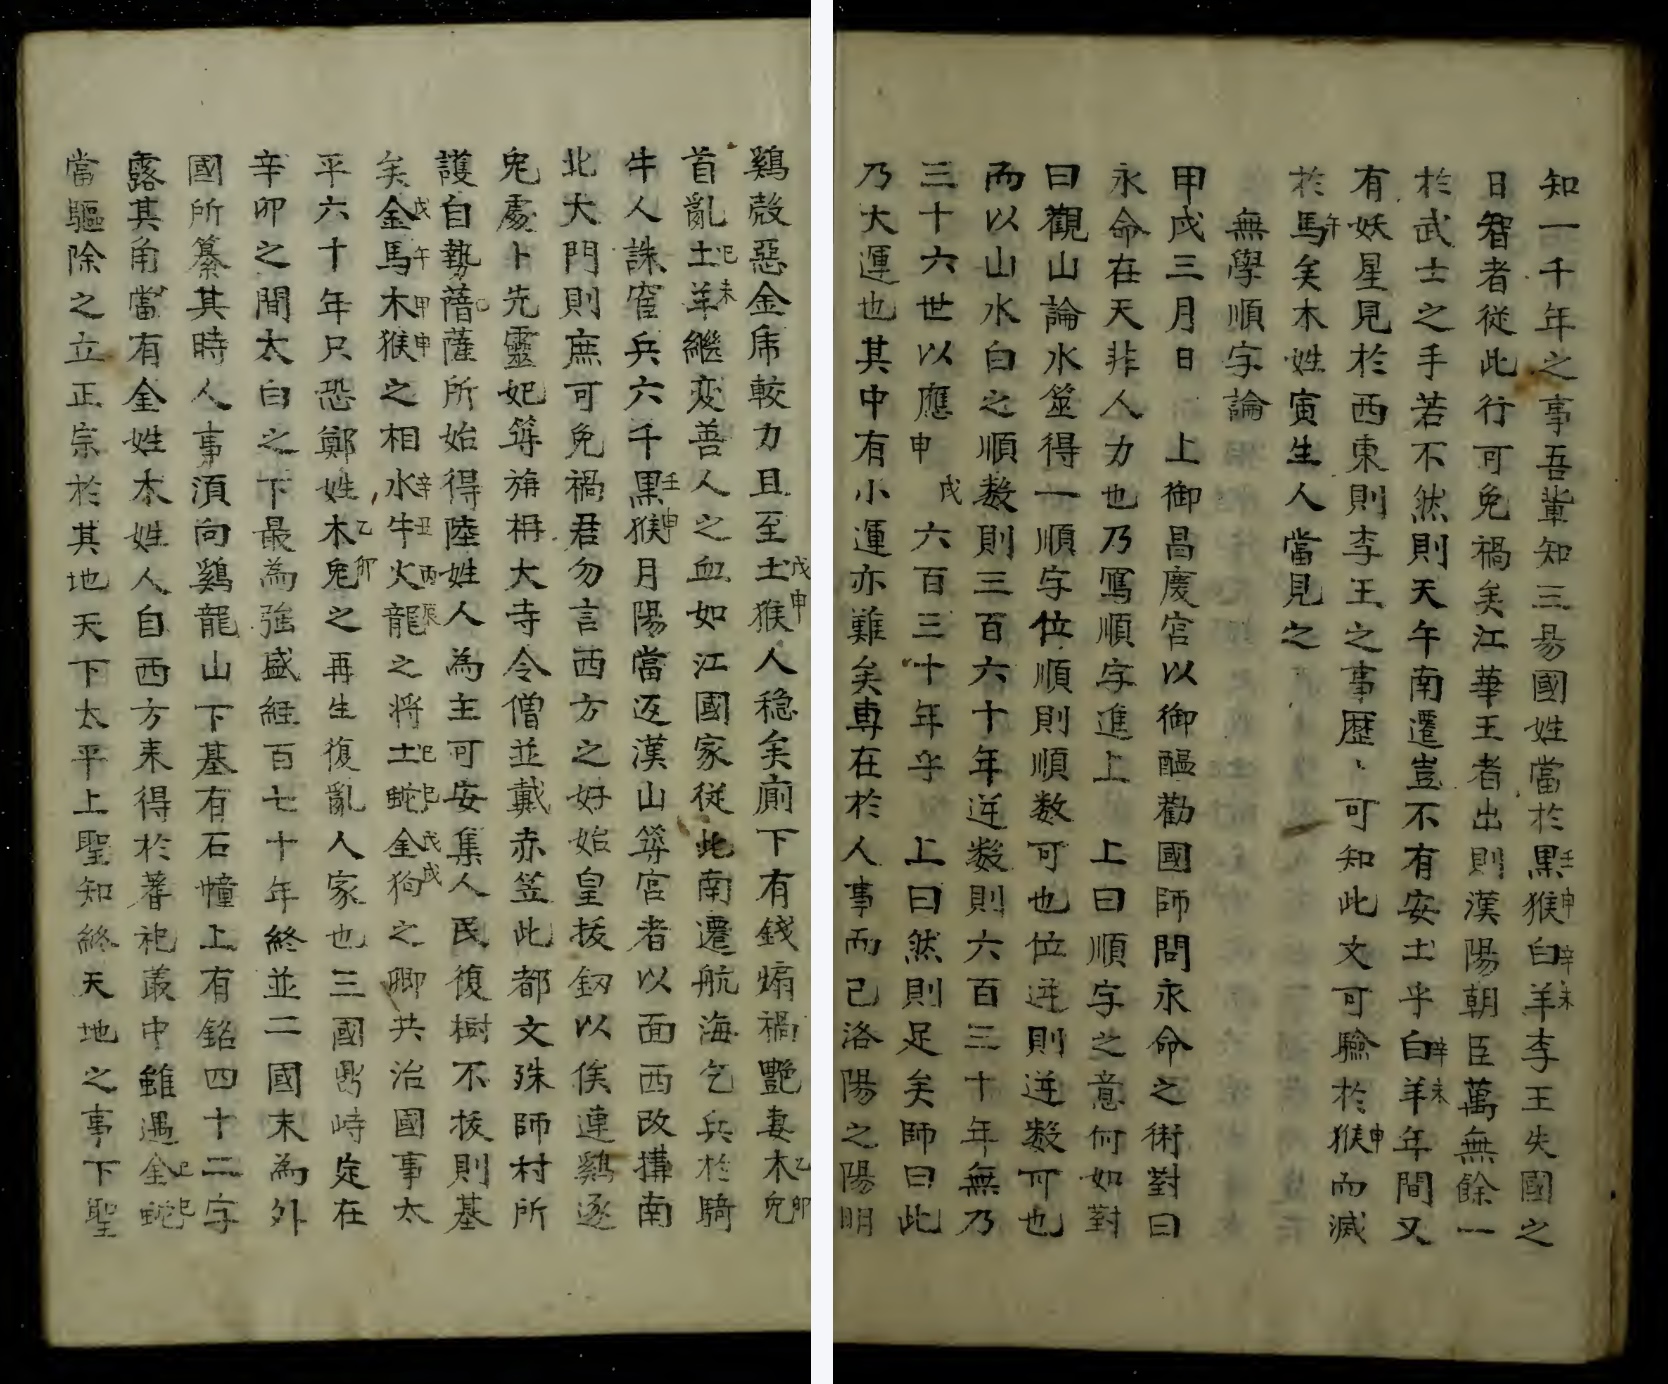 知一千年之事吾輩知三易國姓當於黑猴壬申白羊辛未李王失國之
日智者從此行可免禍矣江華王者出則漢陽朝臣萬無餘一
於武士之手若不然則天午南遷豈不有安土乎白羊辛未年間又
有妖星見於西東則李王之事歷、可知此文可驗於猴申而滅
於馬午矣木姓寅生人當見之
無學順字論
甲戌三月日 上御昌慶宮以御醞勸國師問永命之術對曰
永命在天非人力也乃寫順字進上 上曰順字之意何如對
曰觀山論水筮得一順字位順則順数可也位逆則逆数可也
而以山水白之順数則三百六十年逆数則六百三十年無乃
三十六世以應申戌六百三十年乎 上曰然則足矣師曰此
乃大運也其中有小運亦難矣專在於人事而已洛陽之陽明
鷄殼惡金虎較力且至土猴戊申人穩矣廁下有錢煽禍艷妻木兔乙卯
首亂土羊己未繼変善人之血如江國家從此南遷航海乞兵於騎
牛人誅窄兵六千黑猴壬申月陽當返漢山等宮者以面西改搆南
北大門則庶可免禍君勿言西方之好始皇拔釼以俟連鷄逐
兔處卜先靈妃等旃栴大寺令僧並戴赤笠此都文殊師村所
護自勢菩薩所始得陸姓人為主可安集人民復樹不拔則基
矣金馬戊午木猴甲申之相水牛辛丑火龍丙辰之将土蛇己巳金狗戊戌之卿共治國事太
平六十年只恐鄭姓木兔乙卯之再生復亂人家也三國鼎峙定在
辛卯之間太白之下最為強盛經百七十年終並二國末為外
國所纂其時人事湏向鷄龍山下基有石幢上有銘四十二字
露其角當有金姓木姓人自西方来得於蓍祀叢中雖遇金蛇己巳
當驅除之立正宗於其地天下太平上聖知終天地之事下聖